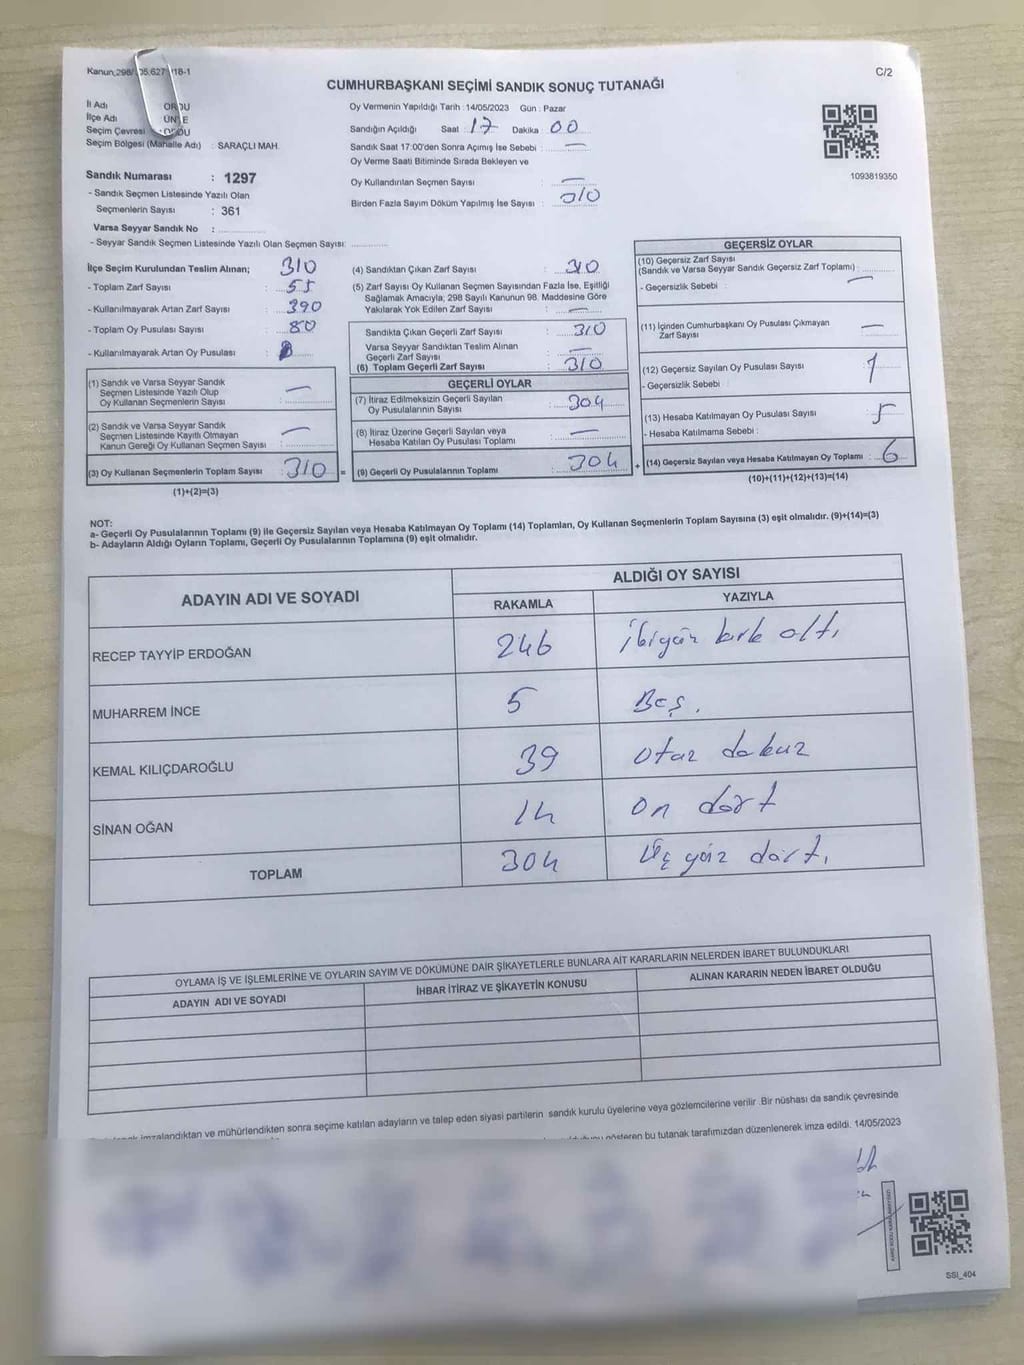 Kanun,298/ 05.627 18-1
C/2
CUMHURBAŞKANI SEÇİMİ SANDIK SONUÇ TUTANAĞI
İl Adı ORDU
İlçe Adı ÜNYE
Seçim Çevresi : ORDU
Seçim Bölgesi (Mahalle Adı) : SARAÇLI MAH.
Sandık Numarası : 1297
- Sandık Seçmen Listesinde Yazılı Olan
Seçmenlerin Sayısı : 361
Varsa Seyyar Sandık No :
- Seyyar Sandık Seçmen Listesinde Yazılı Olan Seçmen Sayısı:
Oy Vermenin Yapıldığı Tarih : 14/05/2023 Gün : Pazar
Sandığın Açıldığı Saat : 17 Dakika : 00
Sandık Saat 17:00'den Sonra Açımış İse Sebebi : —
Oy Verme Saati Bitiminde Sırada Bekleyen ve
Oy Kullandırılan Seçmen Sayısı : —
Birden Fazla Sayım Döküm Yapılmış İse Sayısı : 310
1093819350
İlçe Seçim Kurulundan Teslim Alınan; 310
- Toplam Zarf Sayısı : 55
- Kullanılmayarak Artan Zarf Sayısı : 390
- Toplam Oy Pusulası Sayısı : 80
- Kullanılmayarak Artan Oy Pusulası :
(1) Sandık ve Varsa Seyyar Sandık
Seçmen Listesinde Yazılı Olup
Oy Kullanan Seçmenlerin Sayısı : —
(2) Sandık ve Varsa Seyyar Sandık
Seçmen Listesinde Kayıtlı Olmayan
Kanun Gereği Oy Kullanan Seçmen Sayısı : —
(3) Oy Kullanan Seçmenlerin Toplam Sayısı : 310 =
(1)+(2)=(3)
(4) Sandıktan Çıkan Zarf Sayısı : 310
(5) Zarf Sayısı Oy Kullanan Seçmen Sayısından Fazla İse, Eşitliği
Sağlamak Amacıyla; 298 Sayılı Kanunun 98. Maddesine Göre
Yakılarak Yok Edilen Zarf Sayısı : —
Sandıkta Çıkan Geçerli Zarf Sayısı : 310
Varsa Seyyar Sandıktan Teslim Alınan
Geçerli Zarf Sayısı : —
(6) Toplam Geçerli Zarf Sayısı : 310
GEÇERLİ OYLAR
(7) İtiraz Edilmeksizin Geçerli Sayılan
Oy Pusulalarının Sayısı : 304
(8) İtiraz Üzerine Geçerli Sayılan veya
Hesaba Katılan Oy Pusulası Toplamı : —
(9) Geçerli Oy Pusulalarının Toplamı : 304 +
GEÇERSİZ OYLAR
(10) Geçersiz Zarf Sayısı
(Sandık ve Varsa Seyyar Sandık Geçersiz Zarf Toplamı) :
- Geçersizlik Sebebi : —
(11) İçinden Cumhurbaşkanı Oy Pusulası Çıkmayan
Zarf Sayısı : —
(12) Geçersiz Sayılan Oy Pusulası Sayısı : 1
- Geçersizlik Sebebi :
(13) Hesaba Katılmayan Oy Pusulası Sayısı : 5
- Hesaba Katılmama Sebebi :
(14) Geçersiz Sayılan veya Hesaba Katılmayan Oy Toplamı : 6
(10)+(11)+(12)+(13)=(14)
NOT:
a- Geçerli Oy Pusulalarının Toplamı (9) ile Geçersiz Sayılan veya Hesaba Katılmayan Oy Toplamı (14) Toplamları, Oy Kullanan Seçmenlerin Toplam Sayısına (3) eşit olmalıdır. (9)+(14)=(3)
b- Adayların Aldığı Oyların Toplamı, Geçerli Oy Pusulalarının Toplamına (9) eşit olmalıdır.
ADAYIN ADI VE SOYADI
ALDIĞI OY SAYISI
RAKAMLA YAZIYLA
RECEP TAYYİP ERDOĞAN 246 kırk altı
MUHARREM İNCE 5 Beş.
KEMAL KILIÇDAROĞLU 39 Otuz dokuz
SİNAN OĞAN 14 on dört
TOPLAM 304 Üç yüz dört.
OYLAMA İŞ VE İŞLEMLERİNE VE OYLARIN SAYIM VE DÖKÜMÜNE DAİR ŞİKAYETLERLE BUNLARA AİT KARARLARIN NELERDEN İBARET BULUNDUKLARI
ADAYIN ADI VE SOYADI İHBAR İTİRAZ VE ŞİKAYETİN KONUSU ALINAN KARARIN NEDEN İBARET OLDUĞU
imzalandıktan ve mühürlendikten sonra seçime katılan adayların ve talep eden siyasi partilerin sandık kurulu üyelerine veya gözlemcilerine verilir .Bir nüshası da sandık çevresinde
gösteren bu tutanak tarafımızdan düzenlenerek imza edildi. 14/05/2023
SSI_404